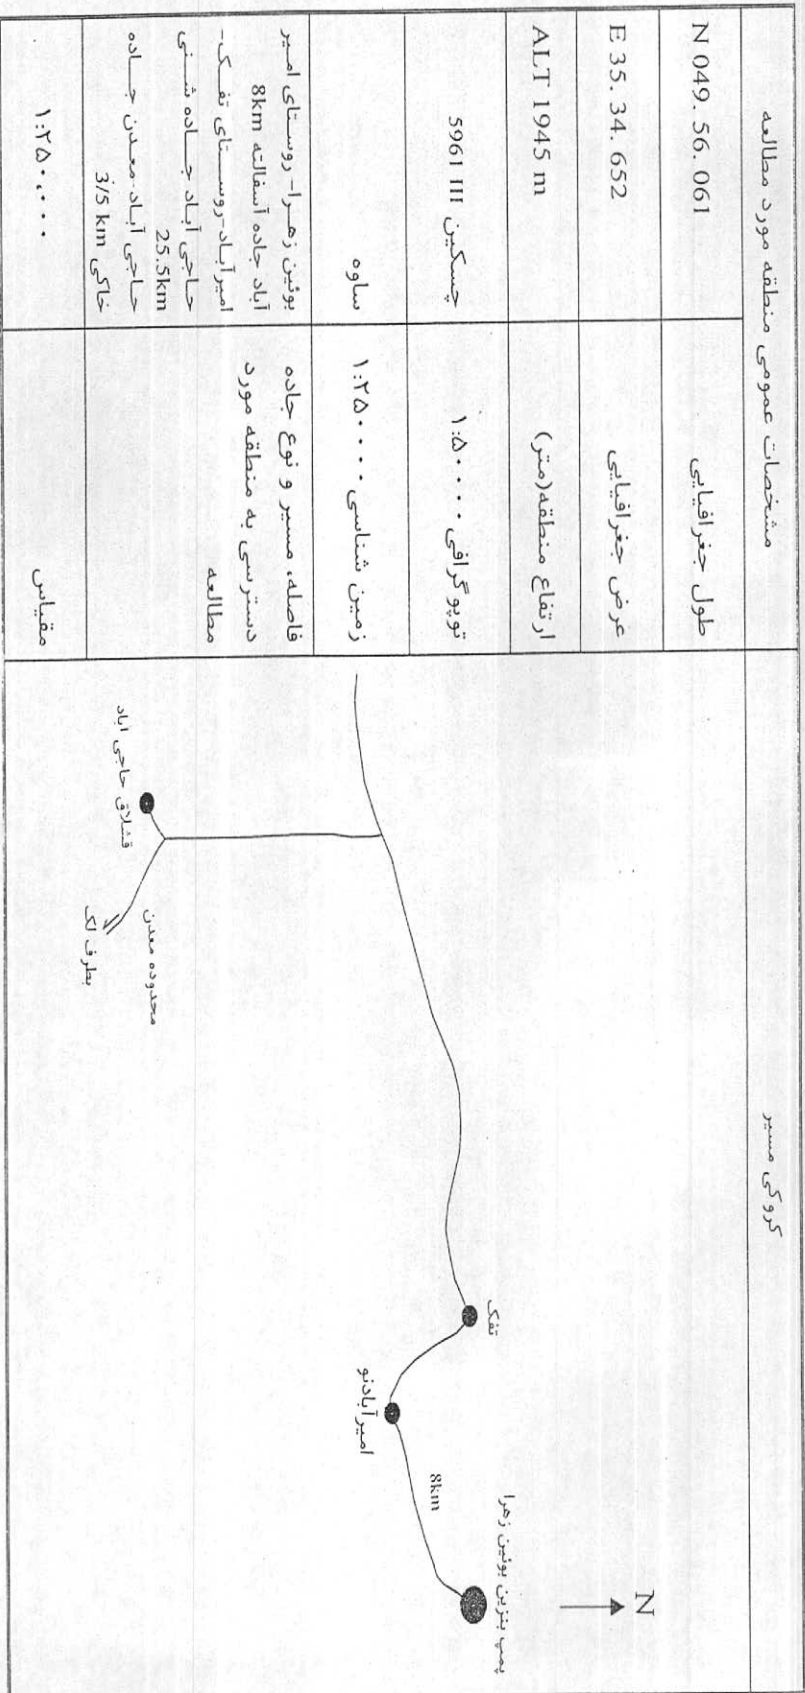 مشخصات عمومی منطقه مورد مطالعه
کروکی مسیر
طول جغرافیایی
N 049. 56. 061
عرض جغرافیایی
E 35. 34. 652
ارتفاع منطقه(متر)
ALT 1945 m
توپوگرافی ۱:۵۰۰۰۰
چسکین 5961 III
زمین شناسی ۱:۲۵۰۰۰۰
ساوه
فاصله، مسیر و نوع جاده
دسترسی به منطقه مورد
مطالعه
بوئین زهـرا- روسـتای امـیر
آباد جاده آسفالته 8km
امیرآبـاد-روسـتای تفـک-
حاجی آباد جـاده شـنی
25.5km
حاجی آباد-معدن جـاده
خاکی 3/5 km
مقیاس
۱:۲۵۰،۰۰۰
N
پمپ بنزین بوئین زهرا
8km
امیرآبادنو
تفک
قشلاق حاجی اباد
محدوده معدن
بطرف لک